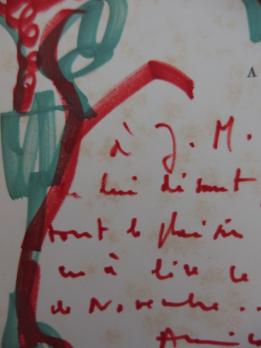 A
à J. M.
lui disant
tout le plaisir
eu à lire ce
de Novembre...
Amic